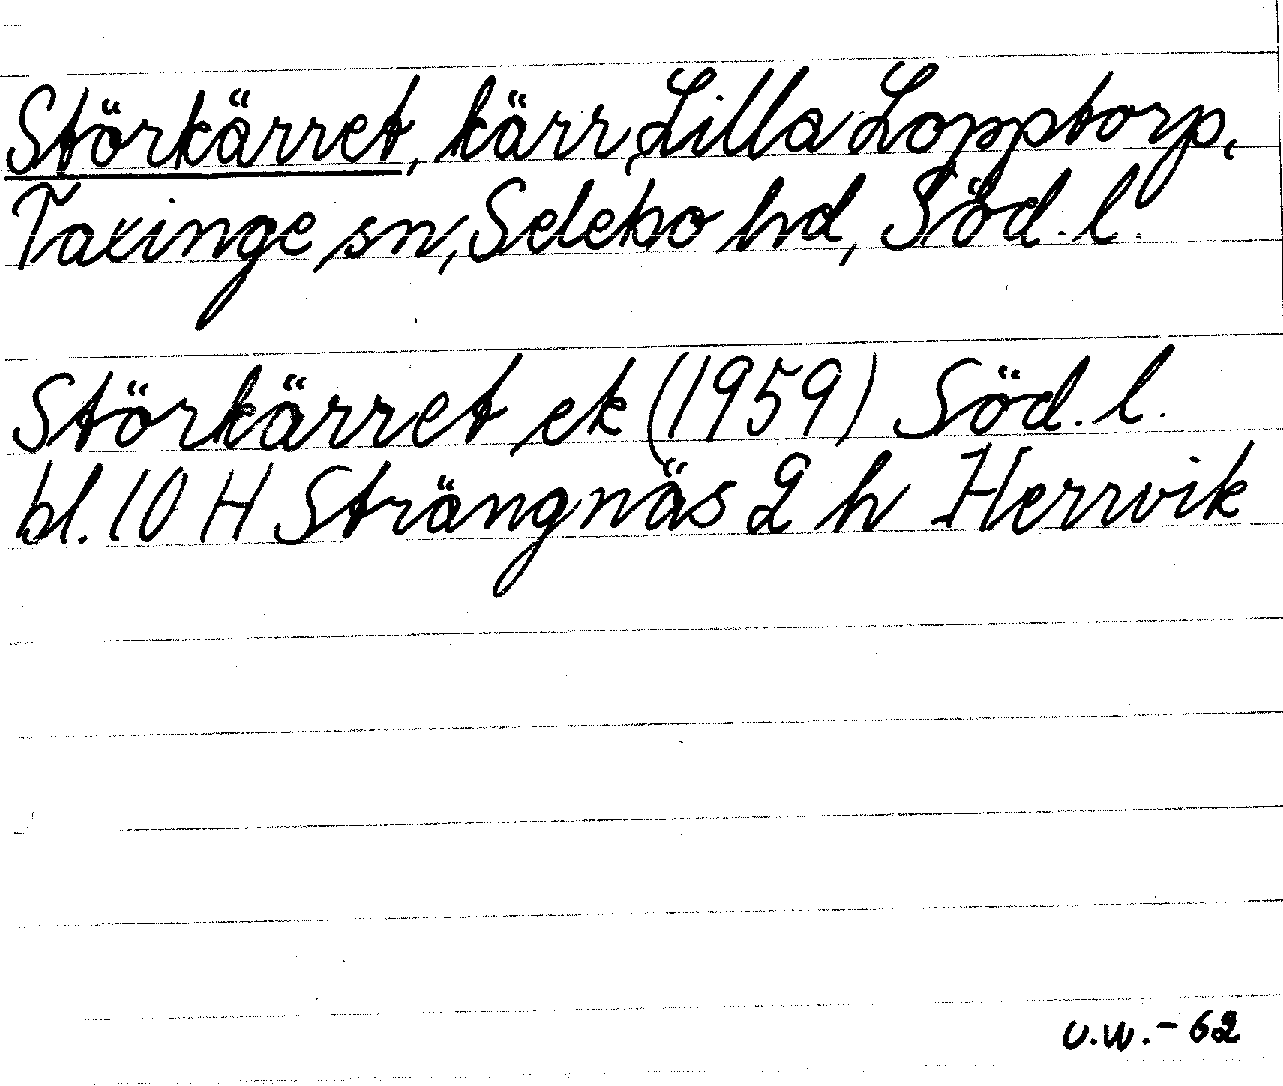 Störkärret, kärr, Lilla Lopptorp,
Taxinge sn, Selebo hd, Söd. l.
Störkärret ek (1959) Söd. l.
bl. 10 H Strängnäs 2 h Herrvik
U.W. - 62